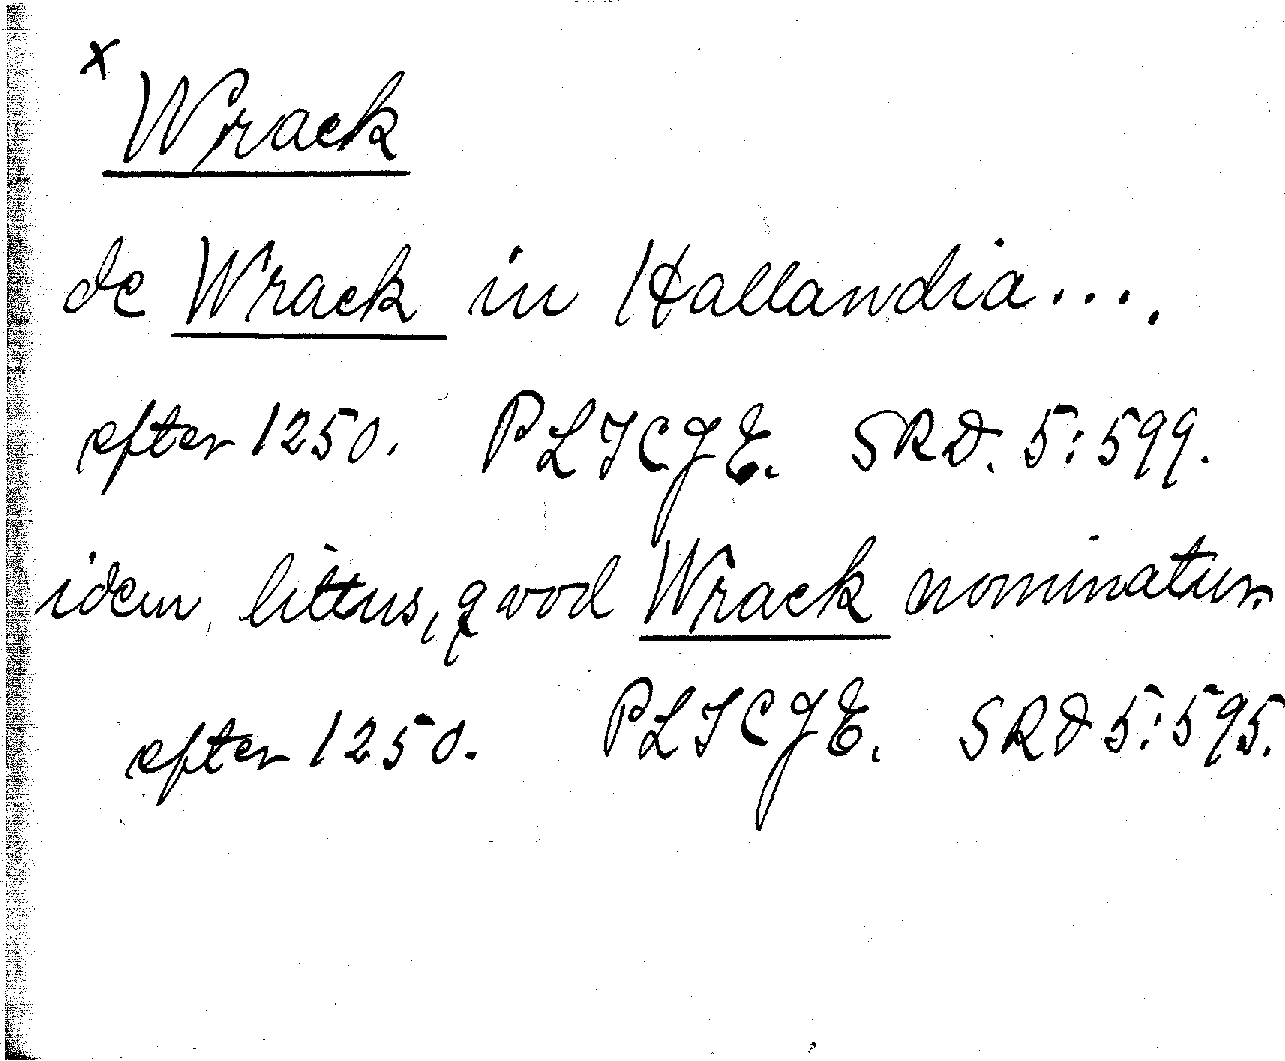 x
Wrack
de Wrack in Hallandia....
efter 1250. PLTCJE. SRD. 5:599.
idem littus, qvod Wrack nominatur
efter 1250. PLTCJE. SRD 5:595.